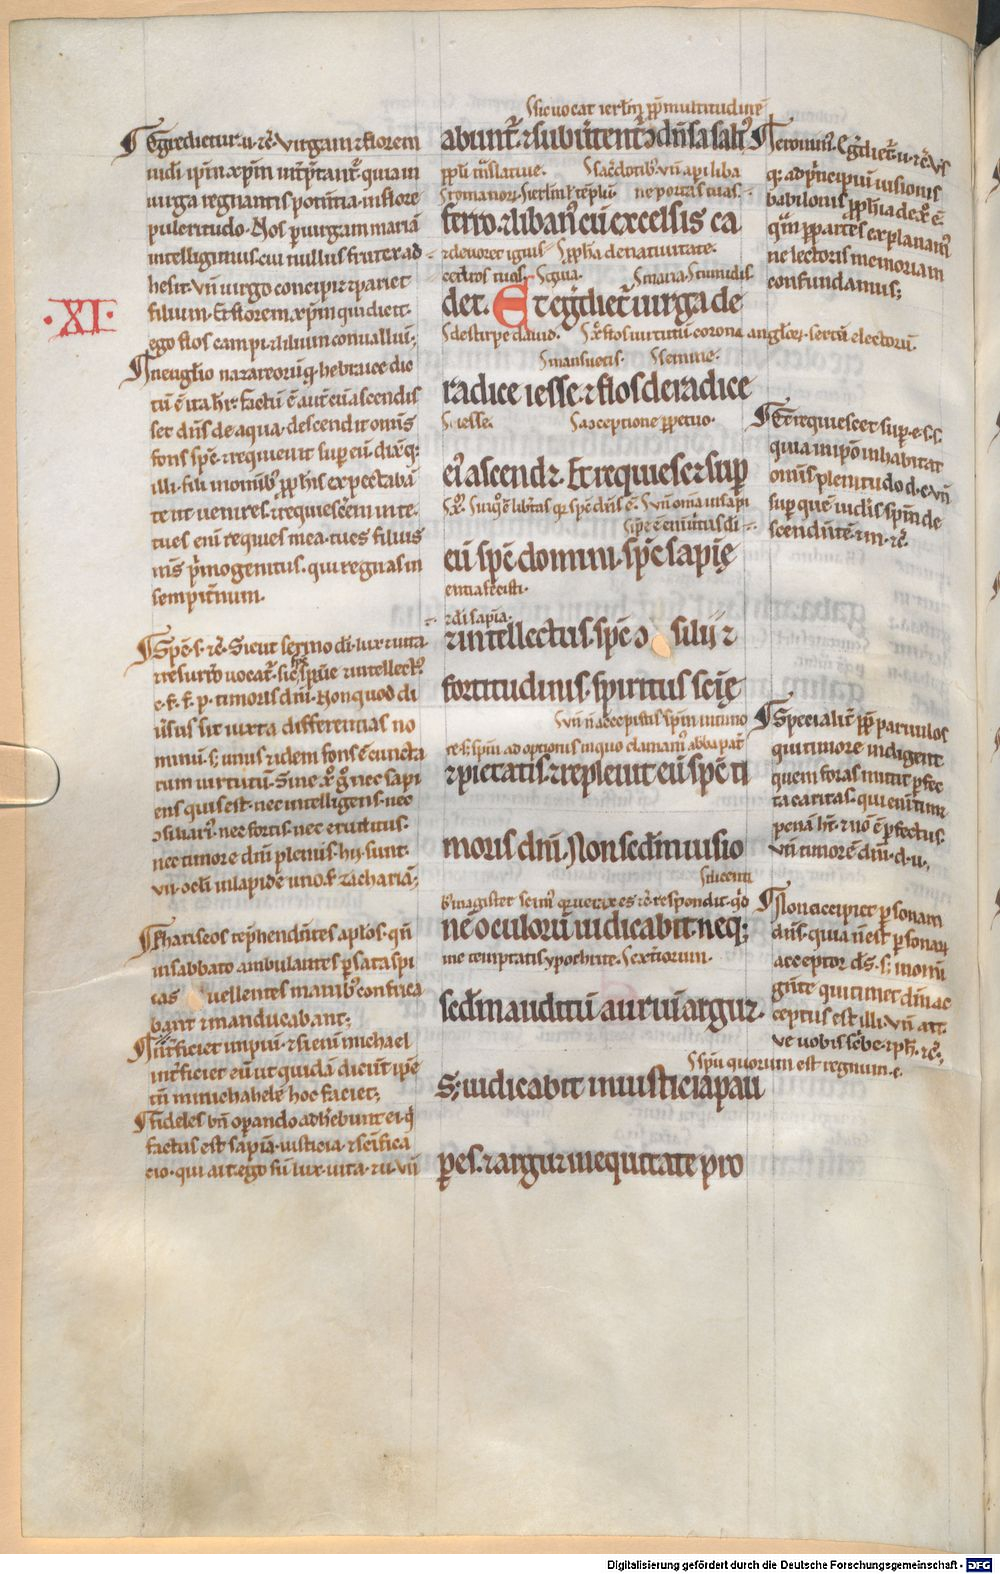 Egredietur. u. et c̄. virgam et florem
iudi ip̄m xp̄m int̄p̄tant᷑. quia in
uirga regnantis potentia. in flore
pulcritudo. Nos p̱ uirgam mariā
intelligimus. cui nullus frutex ad
hesit. Vn̄ uirgo concipiet et pariet
filium. Et florem. xp̄m qui dicit.
ego flos campi. et lilium conualliū;
In euḡlio nazareorū q̄ hebraice dic
tū ē ita hr̄. factū ē aut̄ cū ascendis
set dn̄s de aqua. descendit omīs
fons sp̄c et requieuit sup̱ eū. dix̄q̄;
illi. fili in omnib; p̱ph̄is expectabā
te ut uenires. et requiescerem in te.
tu es enī requies mea. tu es filius
m̄s p̄mogenitus. qui regnas in
sempit̄num.
Sp̄c. s. et c̄. Sicut sermo dī. lux et uita
et resurr̄o uocat᷑. sic sp̄c sapīe et intellect᷒
c. f. s. p. timoris dn̄i. Non quod di
ūsus sit iuxta differentias no
minū. s; unus et idem fons ē cuncta
rum uirtutū. Sine xp̄o g̊ nec sapi
ens quis est. nec intelligens. nec
ↄsiliari᷒. nec fortis. nec eruditus.
nec timore dn̄i plenus. hii sunt
vii. oculi in lapide uno. s. zachariā;
Phariseos rep̄hendn̄tes ap̄los. qn̄
in sabbato ambulantes p̱ sata spi
cas uellentes manib; confrica
bant et manducabant;
Int̄ficiet impiū. et si enī michael
int̄ficiet eū ut quidā dicūt ip̄e
tn̄ in michahele hoc faciet;
fideles bn̄ op̱ando adherebunt ei q̄
factus est sapīa. iusticia. et sc̄ifica
cio. qui ait. ego sū lux. uita. et u. vn̄
·XI·
Sic uocat ierl̄m p̱p̄ multitudinē
abunt᷑. et subuertent᷑ dn̄s a salt᷒
pp̄li t̄nslatiue. Sacerdotib; vn̄ api liba
S romanor̄. S ierl̄m ł templū. ne portas tuas.
ferro. et liban᷒ cū excelsis ca
et deuoret ignis S p̱ph̄ia de natiuitate.
cedros tuas. S egua. S maria. S iunudis
det. Et egr̄diet᷑ uirga de
S de stirpe dauid. S xp̄s flos uirtutū corona anglor̄. sertū electorū.
S mansuetis. S semine.
radice iesse. et flos de radice
S iesse. S a ↄceptione p̱petuo.
ei᷒ ascendet. Et requiescet sup̱
S xp̄. S u᷑ q̄ libertas q̄ sp̄c dn̄s ē. S vn̄ omīa in sapi
S ip̄e ē enī uirtus dī
eū sp̄c domini. sp̄c sapīę
entia fecisti.
et dī sapīa.
et intellectus. sp̄c ↄ silii et
fortitudinis. spiritus scīę
Vn̄ n̄ accepistis sp̄m in timo
re. s; sp̄m adoptionis in quo clamam᷒ abba pat̄
et pietatis. et repleuit eū sp̄c ti
moris dn̄i. Non sec̄dm uisio
S dicenti
b̄ magister scim᷒ q̄ uerax es et c̄. respondit. q̊d
nē oculorū iudicabit. neq;
me temptatis ypochrite. S exteriorum.
sec̄dm auditū auriū arguet.
S spū quorum est regnum. c̄.
S; iudicabit in iusticia pau
p̱es. et arguet in equitate pro
Ieronim᷒. Eg̊diet᷑. u. et c̄. Vs
q; ad p̄ncipiū uisionis
babilonis p̱ph̄ia de xp̄o ē.
qm̄ p̱ partes explanam᷒
ne lectoris memoriam
confundamus;
Et requiescet sup̱. e. s. s.
quia in ip̄o inhabitat
omīs plenitudo d. c. vn̄
sup̱ quē uid̄is sp̄m de
scendn̄te. et m. et c̄.
Specialit̄ p̱p̄ paruulos
qui timore indigent
quem foras mittit p̱fec
ta caritas. qui enī tim;
penā ht̄. et nō ē p̱fectus.
vn̄ timorē dn̄i. d. u.,
Non accipiet p̱sonam
dn̄s. quia n̄ est p̱sonar̄
acceptor ds̄. s; in omī
gn̄te qui timet dm̄ ac
ceptus est illi. Vn̄ ait
ve uobis scribe. et ph̄. et c̄.
Digitalisierung gefördert durch die Deutsche Forschungsgemeinschaft - DFG